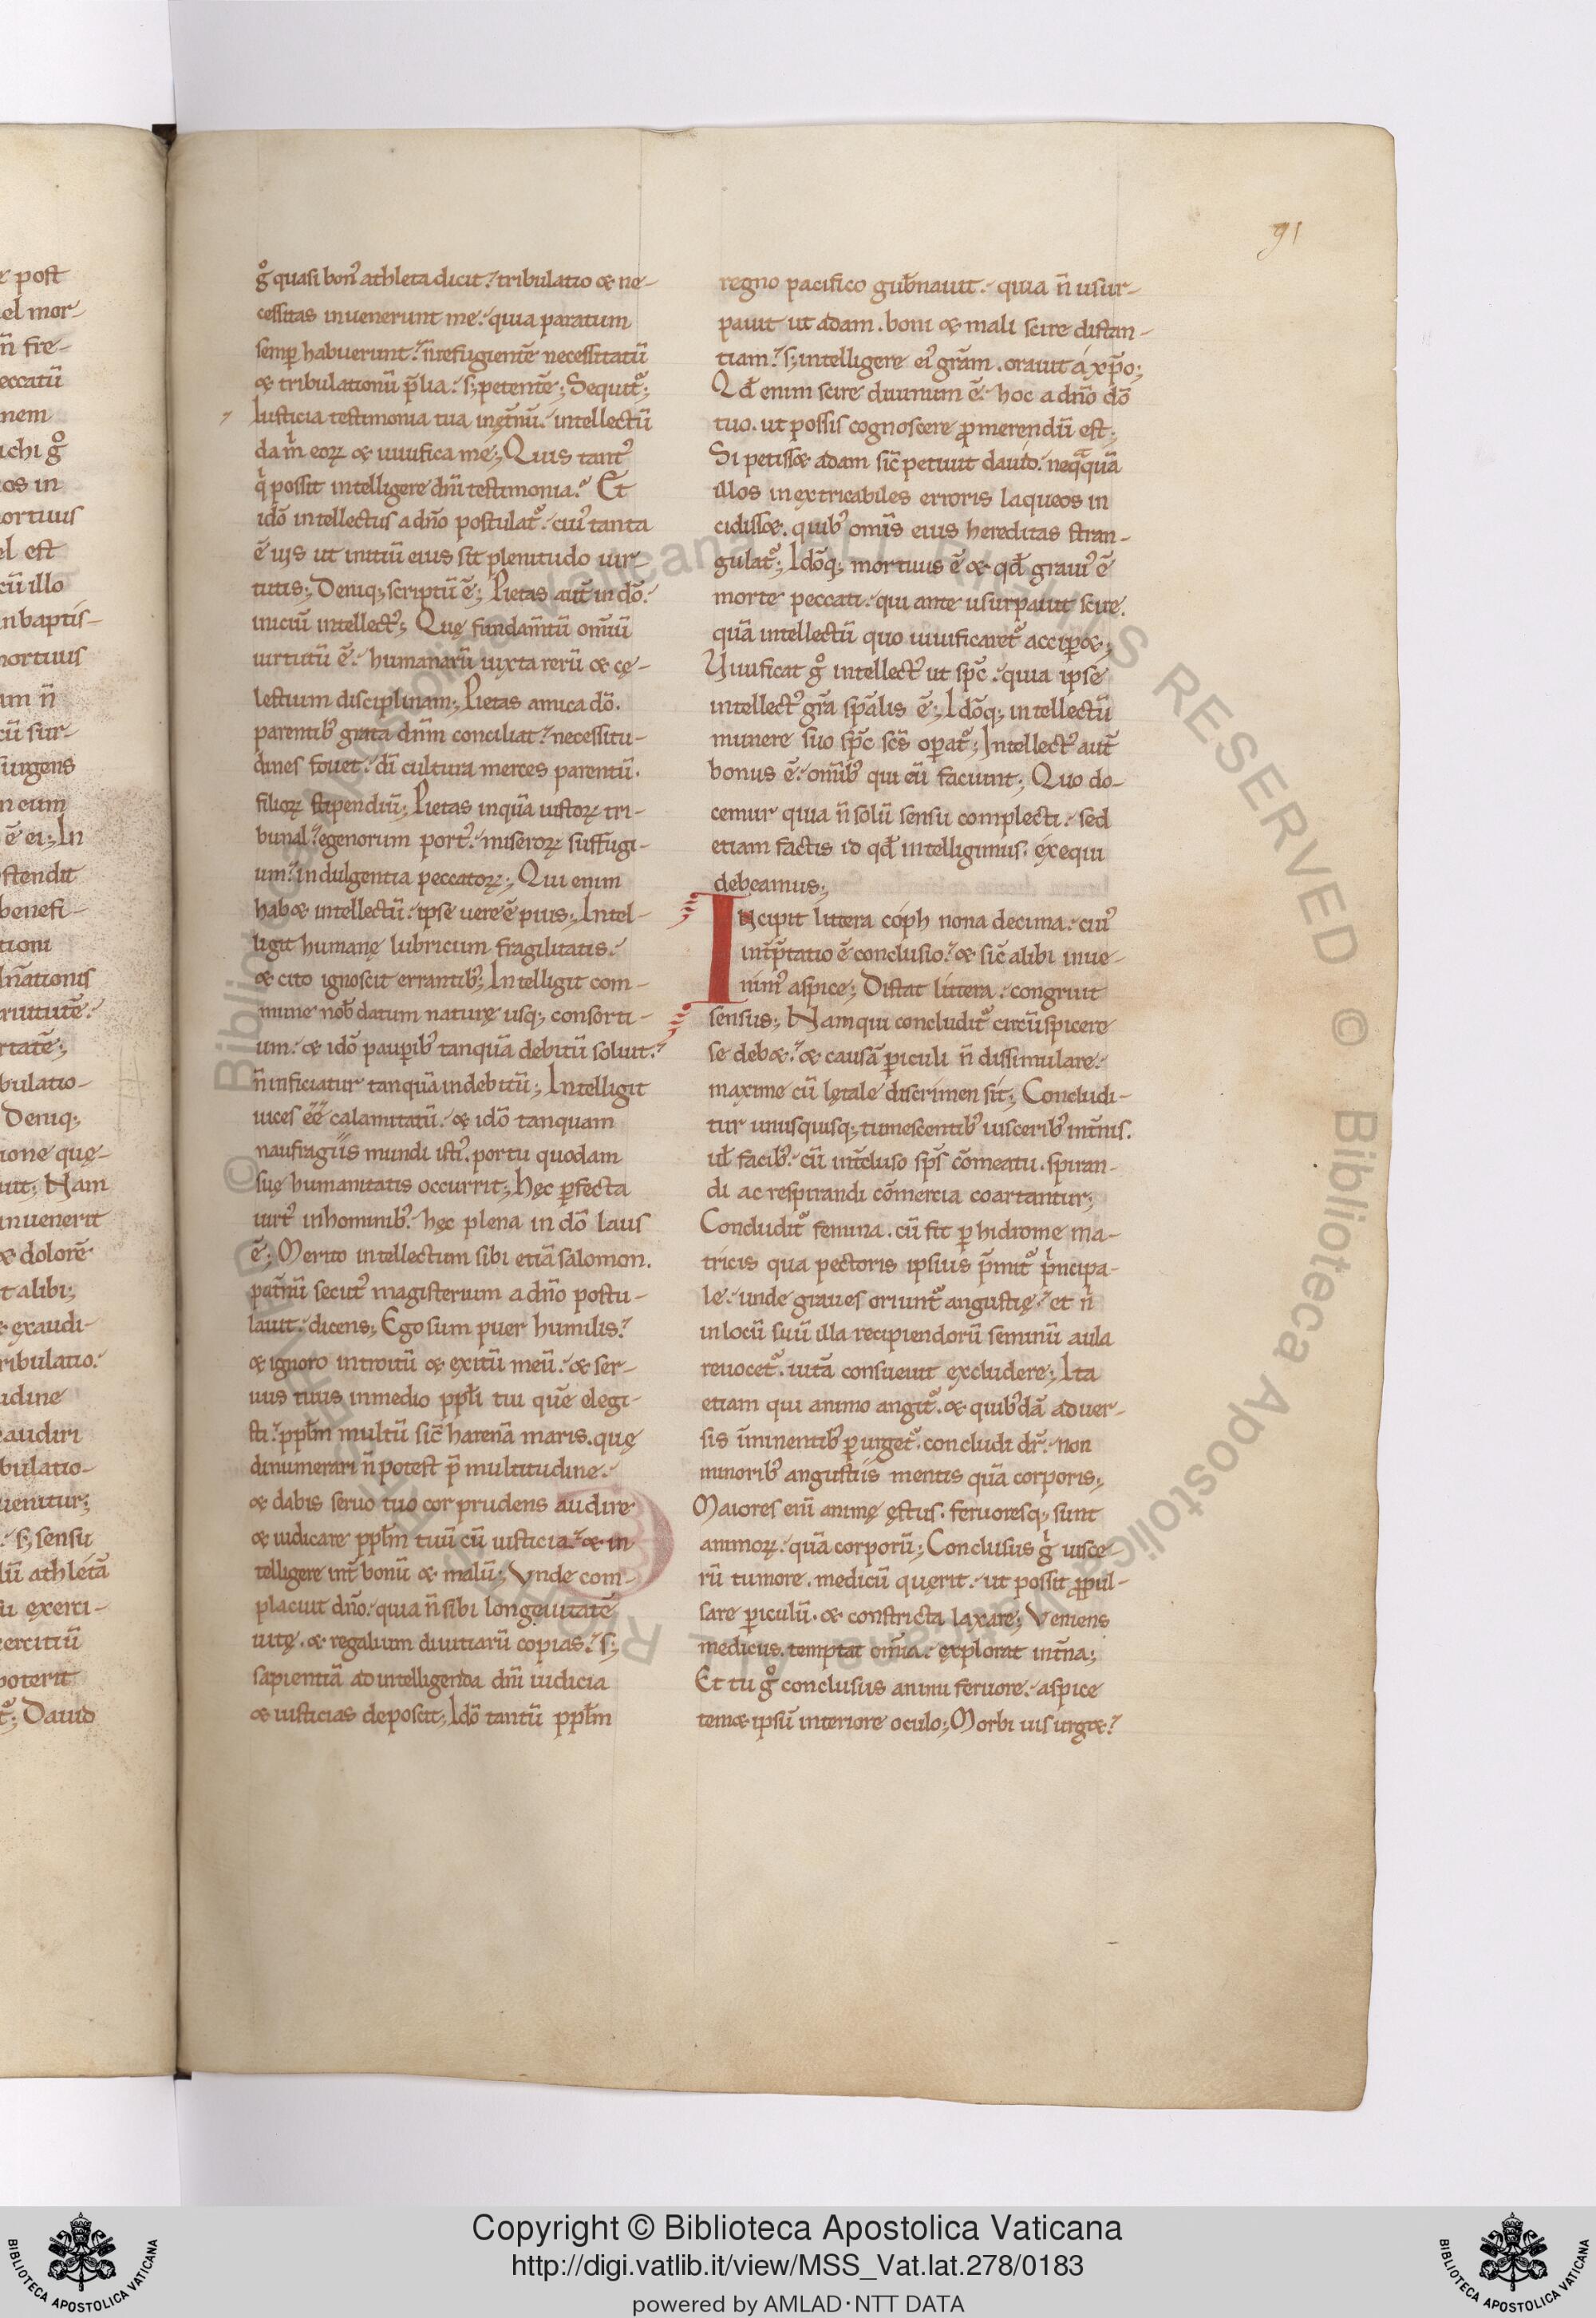 91
g̊ quasi bon᾽ athleta dicit. tribulatio & ne-
cessitas inuenerunt me. quia paratum
semp̲ habuerunt. n̄ refugientē necessitatū
& tribulationū p̄lia. s; petentē; Sequit᷑;
Iusticia testimonia tua inęt̄nū. intellectū
da m̍ eoꝝ & uiuifica me; Quis tant᾽
q̍ possit intelligere dn̄i testimonia. Et
idō intellectus a dn̄o postulat᷑. cui᾽ tanta
ē uis ut initiū eius sit plenitudo uir-
tutis; Deniq; scriptū ē; Pietas aut̄ in dō.
iniciū intellect᾽; Quę fundam̄tū om̄iū
uirtutū ē. humanarū iuxta rerū & cę-
lestium disciplinam; Pietas amica dō.
parentib᾽ grata dn̄m conciliat. necessitu-
dines fouet. dī cultura merces parentū.
filioꝝ stipendiū; Pietas inquā iustoꝝ tri-
bunal. egenorum port᾽. miseroꝝ suffugi-
um. indulgentia peccatoꝝ; Qui enim
hab& intellectū. ipse uere ē pius; Intel-
ligit humanę lubricum fragilitatis.
& cito ignoscit errantib᾽; Intelligit com-
mune nob̄ datum naturę usq; consorti-
um. & idō paup̲ib᾽ tanquā debitū soluit.
n̄ inficiatur tanquā indebitū; Intelligit
uices eē̄ calamitatū. & idō tanquam
naufragiis mundi isti᾽. portu quodam
suę humanitatis occurrit; hęc p̲fecta
uirt᾽ inhominib᾽. hęc plena in dō laus
ē; Merito intellectum sibi etiā salomon.
pat̄nū secut᾽ magisterium a dn̄o postu-
lauit. dicens; Ego sum puer humilis.
& ignoro introitū & exitū meū. & ser-
uus tuus inmedio pp̄li tui quē elegi-
sti. pp̄lm multū sic̄ harenā maris. quę
dinumerari n̄ potest p̄ multitudine.
& dabis seruo tuo cor prudens audire
& iudicare pp̄lm tuū cū iusticia. & in
telligere int̄ bonū & malū; Vnde com-
placuit dn̄o. quia n̄ sibi longęuitatē
uitę. & regalium diuitiarū copias. s;
sapientiā ad intelligenda dn̄i iudicia
& iusticias deposcit; Idō tantū pp̄lm
regno pacifico gub̄nauit. quia n̄ usur-
pauit ut adam. boni & mali scire distan-
tiam. s; intelligere ei᾽ grām. orauit á xp̄o;
Qd̄ enim scire diuinum ē. hoc a dn̄o dō
tuo. ut possis cognoscere ꝓmerendū est;
Si petiss& adam sic̄ petiuit dauid. neqͣquā
illos inextricabiles erroris laqueos in
cidiss&. quib᾽ om̄is eius hereditas stran-
gulat᷑; Idōq; mortuus ē & qd̄ graui᾽ ē
morte peccati. qui ante usurpauit scire.
quā intellectū quo uiuificaret᷑ accip̲&;
Viuificat g̊ intellect᾽ ut sp̄c. quia ipse
intellect᾽ grā sp̄alis ē; Idōq; intellectū
munere suo sp̄c sc̄s op̲at᷑; Intellect᾽ aut̄
bonus ē. om̄ib᾽ qui eū faciunt; Quo do-
cemur quia n̄ solū sensu complecti. sed
etiam factis id qd̄ intelligimus. éxequi
debeamus;
Incipit littera cóph nona decima. cui᾽
int̄p̄tatio ē conclusio. & sic̄ alibi inue-
nim᾽ aspice; Distat littera. congruit
sensus; Nam qui concludit᷑ circūspicere
se deb&. & causā p̲iculi n̄ dissimulare.
maxime cū lętale discrimen sit; Concludi-
tur unusquisq; tumescentib᾽ uisceribus int̄nis.
ul̄ facib᾽. cū int̄cluso sp̄s cōmeatu. spiran-
di ac respirandi cōmercia coartantur;
Concludit᷑ femina. cū fit p̲ hidrome ma-
tricis qua pectoris ipsius p̄mit᷑ p̍ncipa-
le. unde graues oriunt᷑ angustię. et n̍
inlocū suū illa recipiendorū seminū aula
reuocet᷑. uitā consueuit excludere; Ita
etiam qui animo angit᷑. & quib᾽dā aduer-
sis īminentib᾽ p̲urget᷑. concludi dr̄. non
minorib᾽ angustiis mentis quā corporis;
Maiores enī animę ęstus. feruoresq; sunt
animoꝝ. quā corporū; Conclusus g̍ uisce-
rū tumore. medicū quęrit. ut possit ꝓpul-
sare p̲iculū. & constricta laxare; Veniens
medicus. temptat om̄ia. explorat int̄na;
Et tu g̊ conclusus animi feruore. aspice
tem& ipsū interiore oculo; Morbi uis urg&.
Copyright © Biblioteca Apostolica Vaticana
http://digi.vatlib.it/view/MSS_Vat.lat.278/0183
powered by AMLAD·NTT DATA
BIBLIOTECA APOSTOLICA VATICANA
BIBLIOTECA APOSTOLICA VATICANA